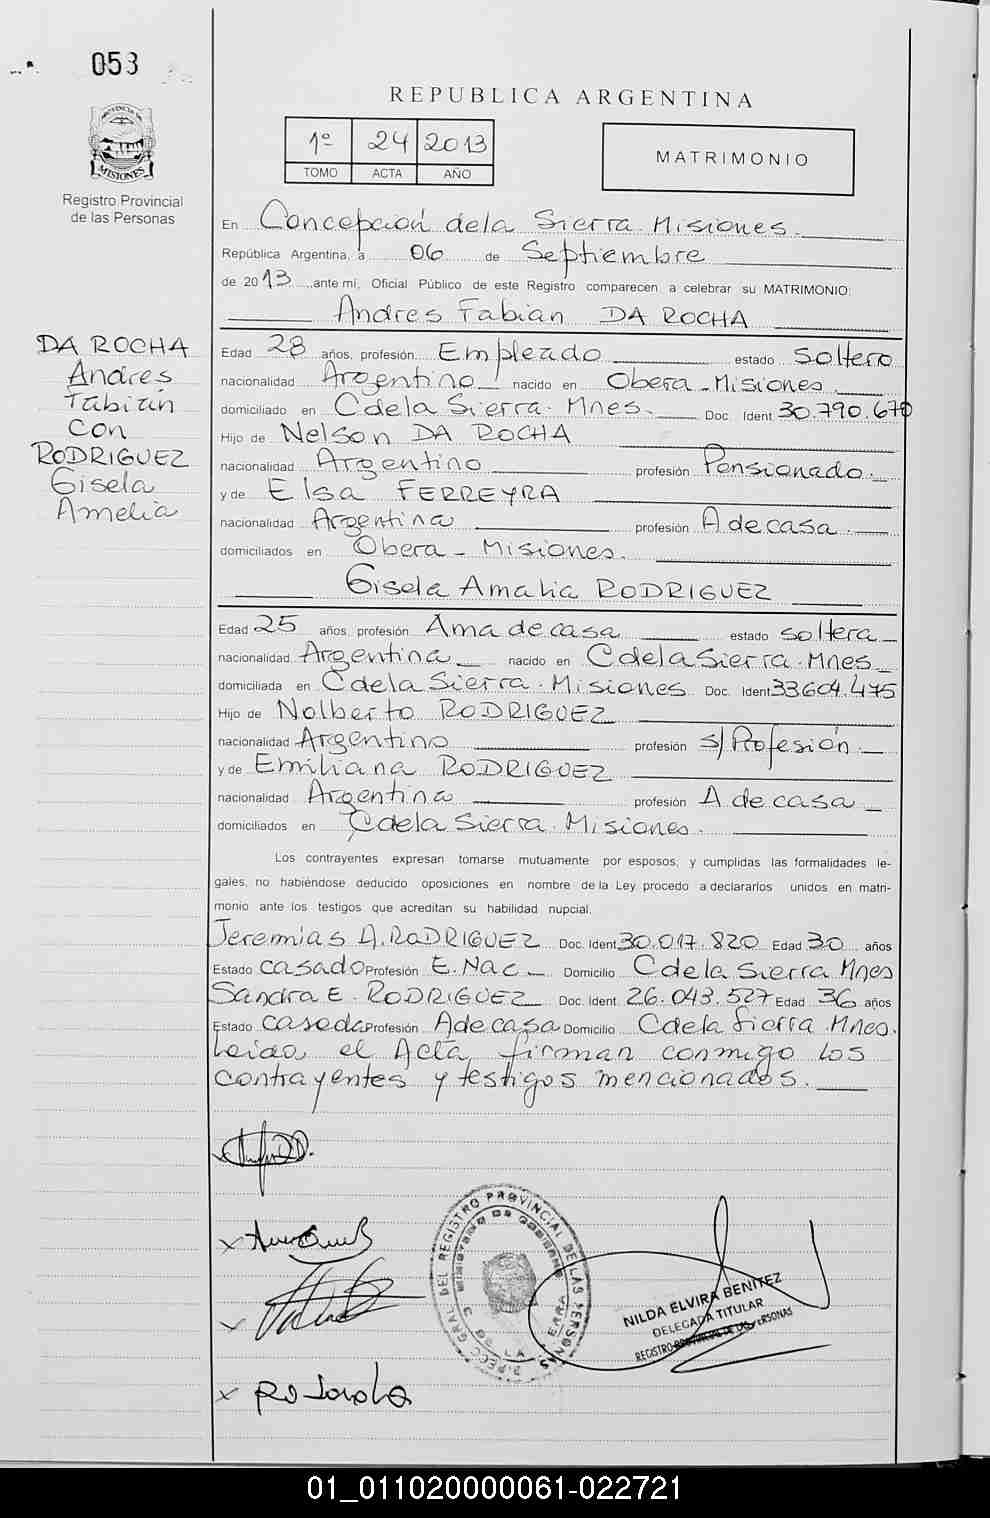 053
PROVINCIA DE
MISIONES
Registro Provincial
de las Personas
REPUBLICA ARGENTINA
1º 24 2013
TOMO ACTA AÑO
MATRIMONIO
En Concepción dela Sierra. Misiones.
República Argentina, a 06 de Septiembre
de 2013, ante mí, Oficial Público de este Registro comparecen a celebrar su MATRIMONIO:
Andres Fabian DA ROCHA
DA ROCHA
Andres
Fabián
con
RODRIGUEZ
Gisela
Amelia
Edad 28 años, profesión Empleado estado soltero
nacionalidad Argentino nacido en Obera - Misiones.
domiciliado en Cdela Sierra. Mnes. Doc. Ident. 30.790.670
Hijo de Nelson DA ROCHA
nacionalidad Argentino profesión Pensionado.
y de Elsa FERREYRA
nacionalidad Argentina profesión A de casa.
domiciliados en Obera - Misiones.
Gisela Amalia RODRIGUEZ
Edad 25 años, profesión Ama de casa estado soltera
nacionalidad Argentina nacido en C dela Sierra. Mnes
domiciliada en C dela Sierra. Misiones Doc. Ident. 33604.475
Hijo de Nolberto RODRIGUEZ
nacionalidad Argentino profesión s/Profesión.
y de Emiliana RODRIGUEZ
nacionalidad Argentina profesión A de casa
domiciliados en Cdela Sierra. Misiones.
Los contrayentes expresan tomarse mutuamente por esposos, y cumplidas las formalidades le-
gales, no habiéndose deducido oposiciones en nombre de la Ley procedo a declararlos unidos en matri-
monio ante los testigos que acreditan su habilidad nupcial.
Jeremias A. RODRIGUEZ Doc. Ident. 30.017.820 Edad 30 años
Estado casado Profesión E. Nac. Domicilio C dela Sierra Mnes
Sandra E. RODRIGUEZ Doc. Ident. 26.043.527 Edad 36 años
Estado casada Profesión A de casa Domicilio C dela Sierra Mnes.
Leida el Acta firman conmigo los
contrayentes y testigos mencionados.
DIRECC. GRAL DEL REGISTRO PROVINCIAL DE LAS PERSONAS
MINISTERIO DE GOBIERNO
C. DE LA SIERRA
NILDA ELVIRA BENITEZ
DELEGADA TITULAR
REGISTRO PROVINCIAL DE LAS PERSONAS
01_011020000061-022721